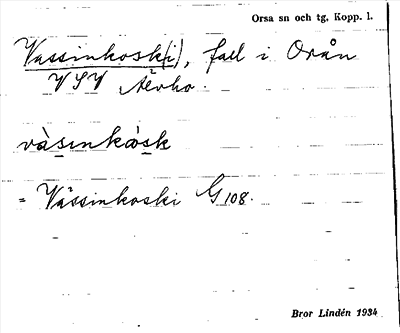 Orsa sn och tg. Kopp. l.
Vassinkosk(i), fall i Orån
VSV Älvho.
vàsınkòsk
= Vässinkoski G 108.
Bror Lindén 1934